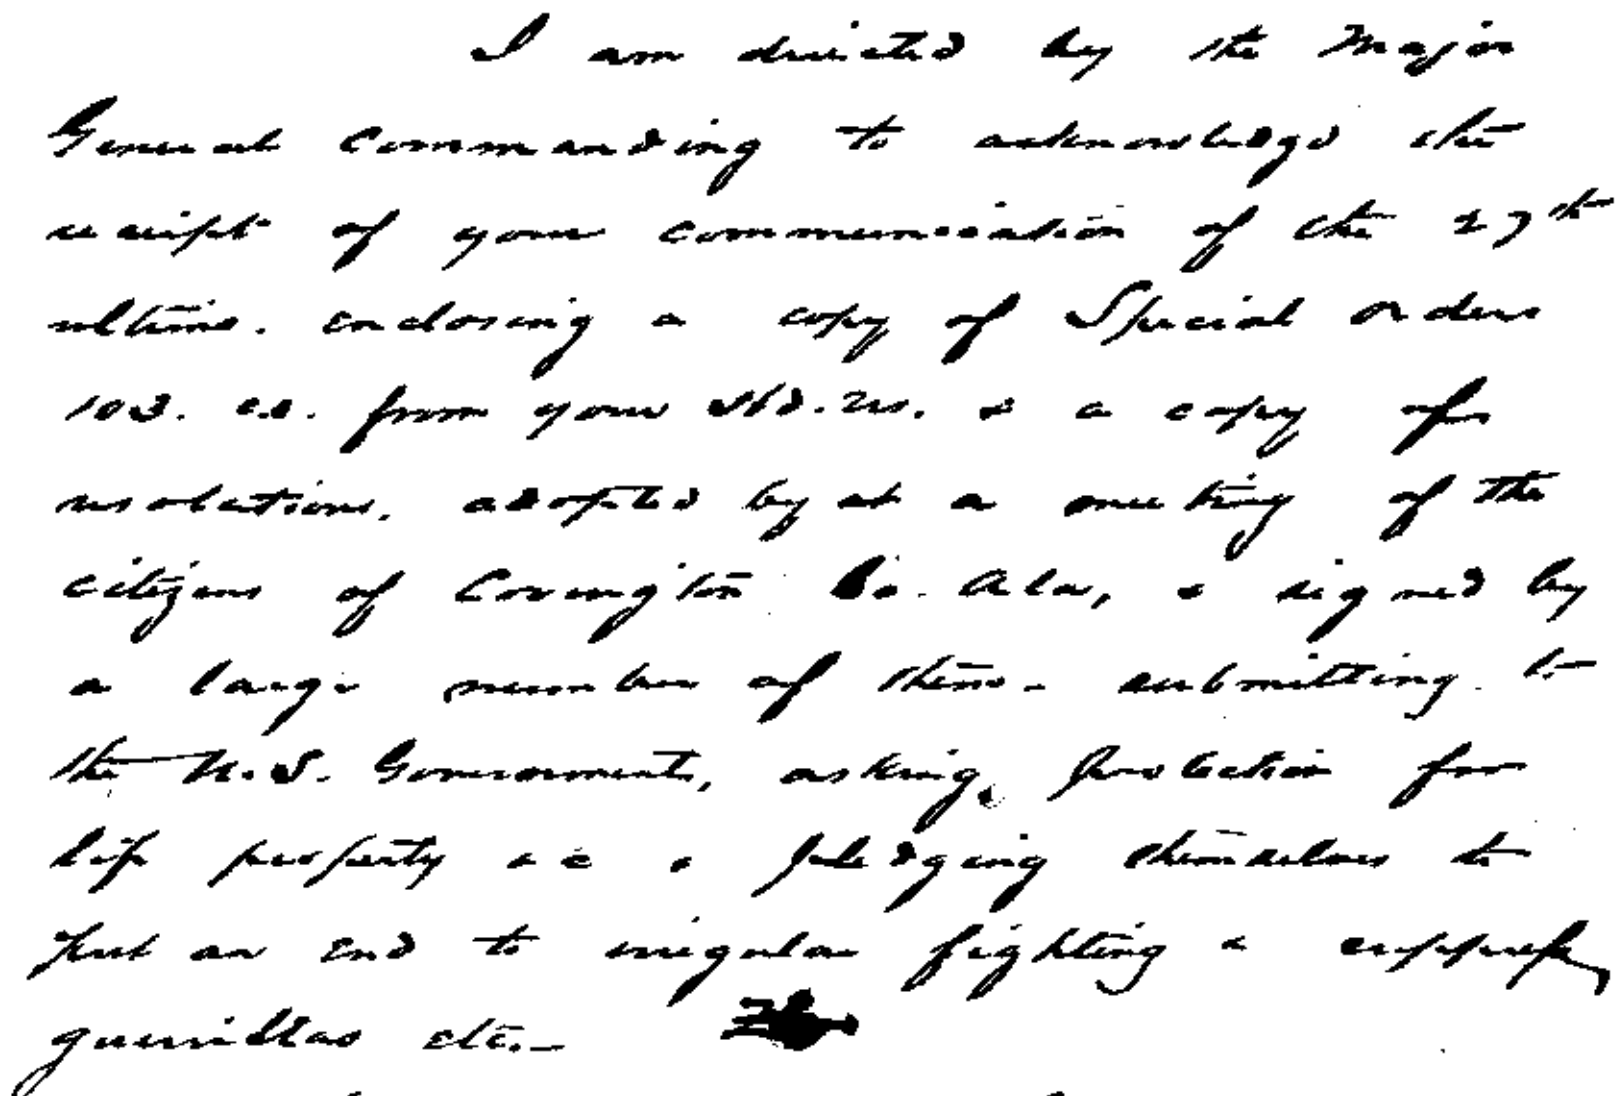 I am directed by the Major
General Commanding to acknowledge the
receipt of your communication of the 27th
ultimo. enclosing a copy of Special Orders
103. c.s. from your Hd. Qrs. & a copy of
resolutions, adopted by at a meeting of the
citizens of Covington Co. Ala, & signed by
a large number of them - submitting to
the U.S. Government, asking protection for
life property &c & pledging themselves to
put an end to irregular fighting & suppress
guerrillas etc. -